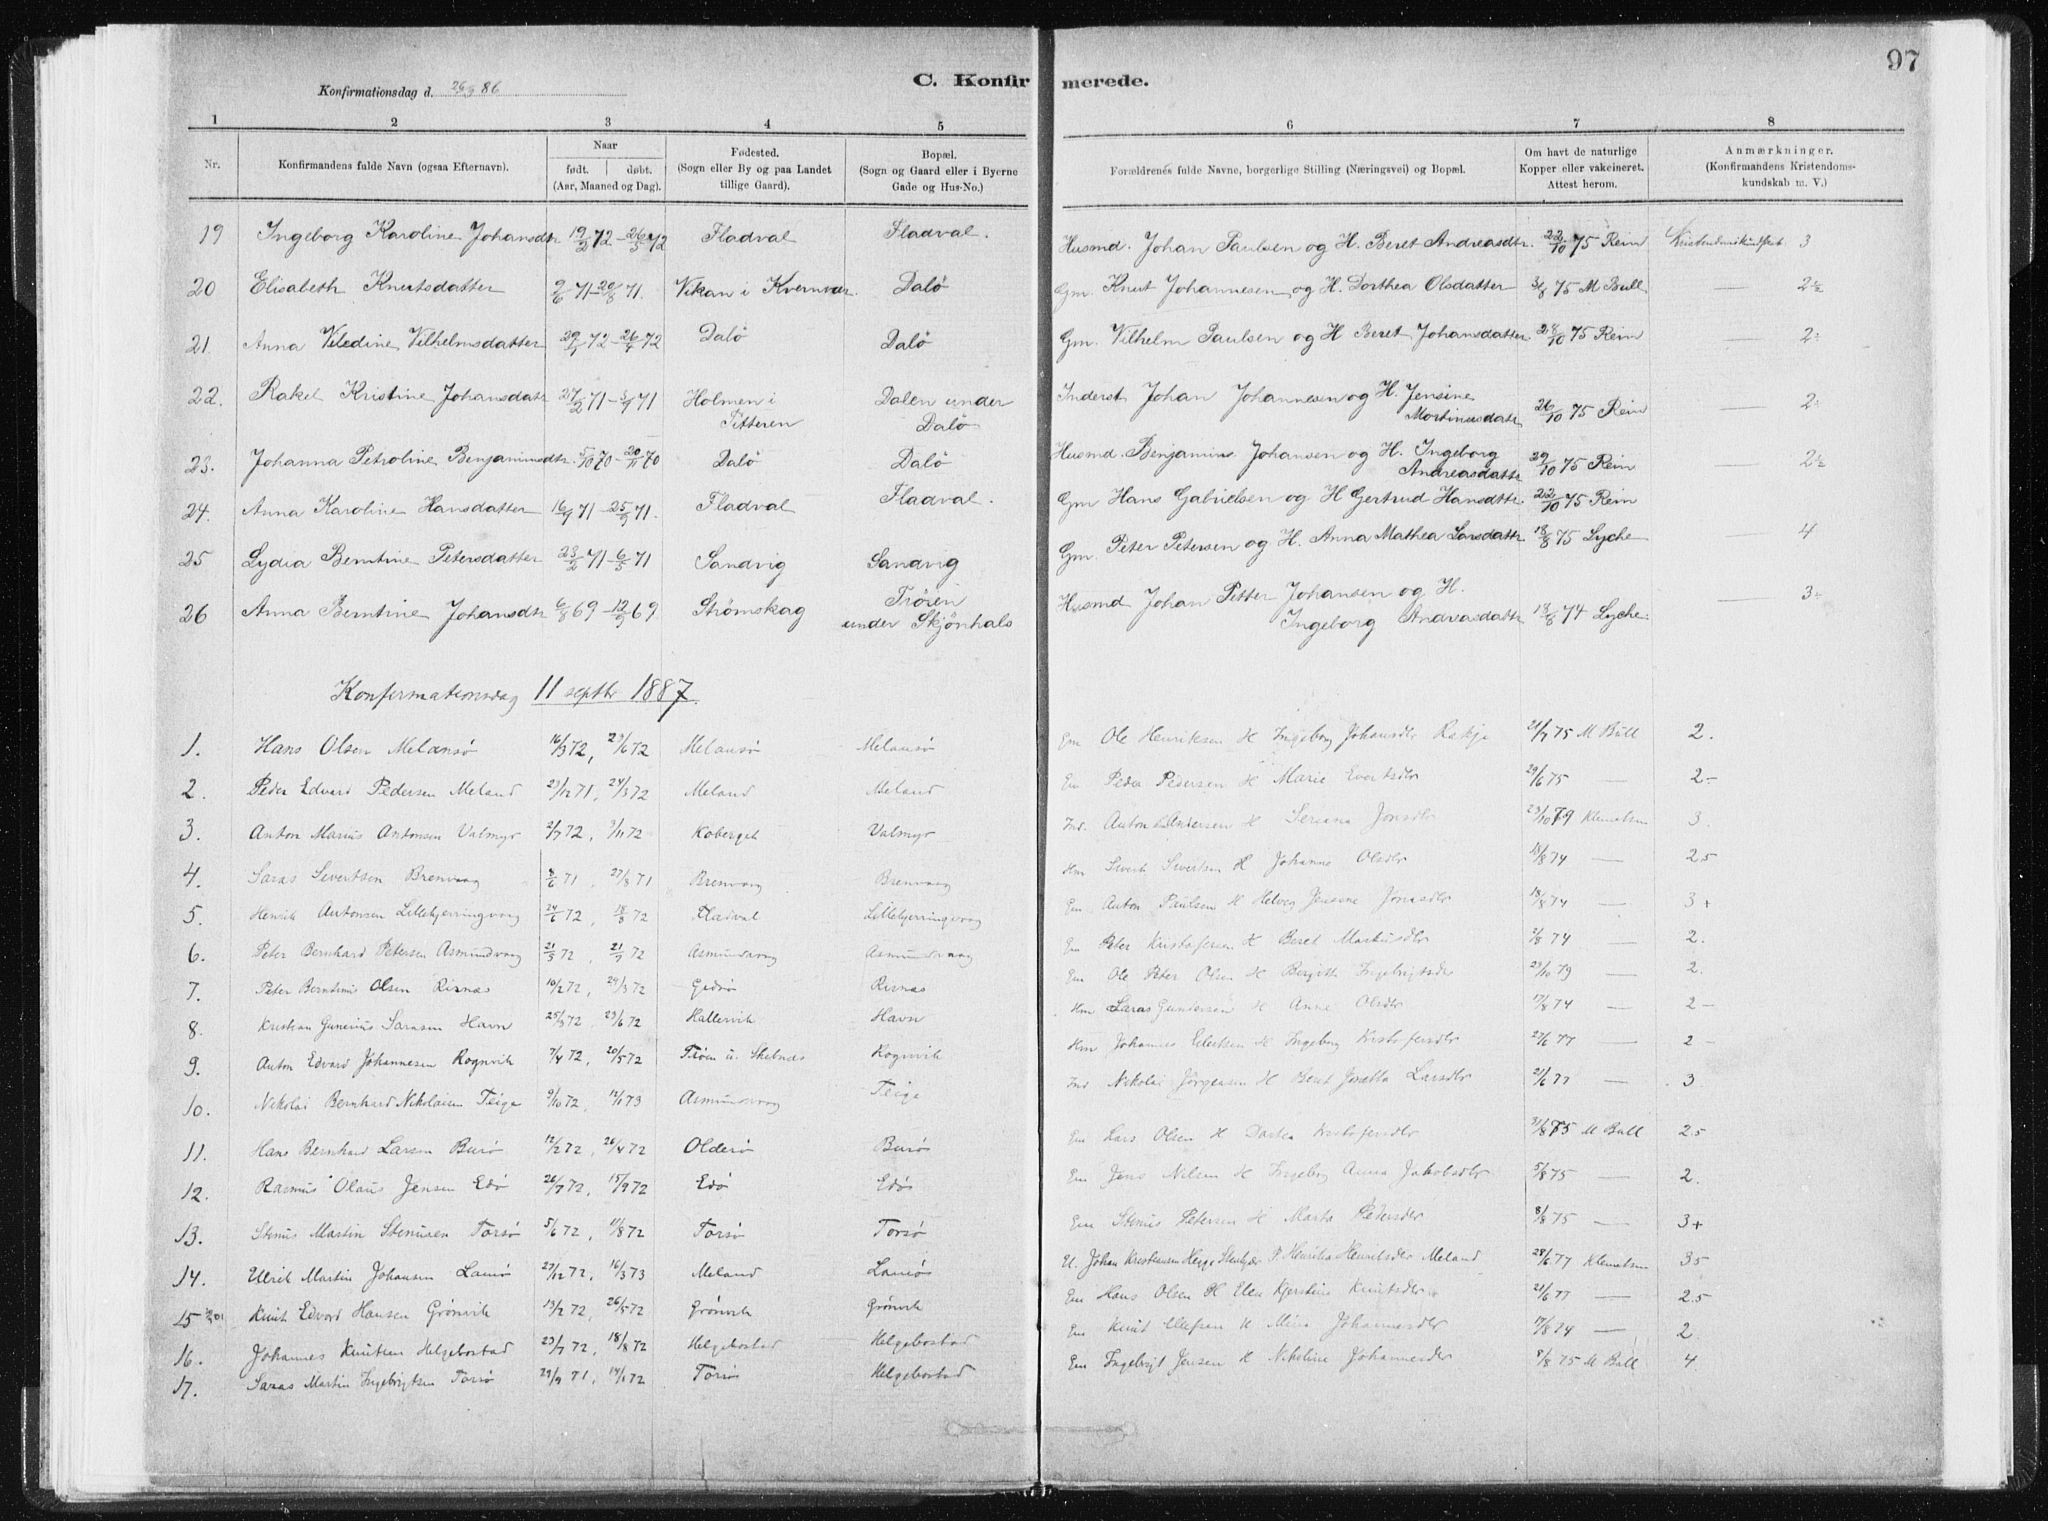 97
C. Konfirmerede.
Konfirmationsdag d. 26/9 86
1 2 3 4 5 6 7 8
Nr. Konfirmandens fulde Navn (ogsaa Efternavn). Naar født. døbt. (Aar, Maaned og Dag). Fødested. (Sogn eller By og paa Landet tillige Gaard). Bopæl. (Sogn og Gaard eller i Byerne Gade og Hus-No.) Forældrenes fulde Navne, borgerlige Stilling (Næringsvei) og Bopæl. Om havt de naturlige Kopper eller vakcineret. Attest herom. Anmærkninger. (Konfirmandens Kristendomskundskab m. V.)
19 Ingeborg Karoline Johansdtr 19/2 72 - 26/5 72 Fladval Fladval. Husmd. Johan Paulsen og H. Beret Andreasdtr. 22/10 75 Rein 3
20 Elisabeth Knutsdatter 2/6 71 - 20/8 71. Vikan i Kvernvær Dalö Gm. Knut Johannesen og H. Dorthea Olsdatter 31/8 75 M Bull — 2÷
21. Anna Vilhelmsdatter 29/1 72 - 26/4 72 Dalö Dalö Gm. Vilhelm Paulsen og H Beret Johansdatter 28/10 75 Rein — 2÷
22. Rakel Kristine Johansdatr 27/2 71 - 71 Holmen i Titteren Dalen under Dalö Inderst Johan Johannesen og H. Jensine Martinusdatr 26/10 75 Rein — 2÷
23. Johanna Petroline Benjaminsdtr. 5/10 70 - 20/11 70 Dalö Dalö Husmd. Benjamin Johansen og H. Ingeborg Andreasdatr 29/10 75 Rein — 2÷
24. Anna Karoline Hansdatter 16/9 71 - 25/9 71. Fladval Fladval. Gm Hans Gabrielsen og H Gertrud Hansdtr. 22/10 75 Rein
25 Lydia Berntine Petersdatter 23/2 71 - 6/5 71 Sandvig Sandvig Gm. Peter Petersen og H. Anna Mathea Larsdatr 18/8 75 Lyche — 4
26 Anna Berntine Johansdtr 6/8 69 - 12/9 69. Strömskag Tröen under Skjönhals Husmd Johan Petter Johansen og H. Ingeborg Andreasdatr 18/8 74 Lyche — 3÷
Konfirmationsdag 11 septbr 1887.
1. Hans Olsen Melansø 16/3 72, 23/6 72 Melansø Melansø Em Ole Henriksen H Ingeborg Johansdtr 21/7 75 M Bull 2.
2. Peder Edvard Pedersen Meland 23/12 71, 24/3 72 Meland Meland Em Peder Pedersen H Marie Evertsdtr 29/6 75 — 2-
3. Anton Marius Antonsen Valmyr 2/7 72, 3/11 72 Koberget Valmyr Ind. Anton H Seriana Jonsdtr 23/10 79 Klemetsen 3.
4. Saras Sivertsen Brenvaag 8/6 71, 27/8 71 Brenvaag Brenvaag Hm Sivert Sivertsen H Johanna Olsdtr 18/8 74 — 25
5. Henrik Antonsen Lillekjerringvaag 24/6 72, 18/8 72 Fladval Lillekjerringvaag Em Anton Paulsen H Jonasdtr 18/8 74 — 3+
6. Peter Bernhard Petersen Asmundvaag 21/3 72, 21/7 72 Asmundvaag Asmundvaag Em Peter Kristofersen H Beret Markusdtr 2/8 74 — 2.
7. Peter Berntinus Olsen Risnæs 10/2 72, 24/3 72 Gedsø Risnæs Em Ole Peter Olsen H Bergitte Ingebrigtsdtr 29/10 79 2.
8. Kristian Gunerius Sarasen Havn 25/3 72, 23/6 72 Hallervik Havn Hm Saras Gundersen H Anne Olsdtr 17/8 74 — 2-
9. Anton Edvard Johannesen Rognvik 7/4 72, 20/5 72 Trøen u. Skebnæs Rognvik Hm Johannes Ediksen H Ingeborg Kristofersdtr 27/6 77 — 2-
10. Nikolai Bernhard Nikolaisen Teige 9/10 72, 12/1 73 Asmundvaag Teige Ind Nikolai Jörgensen H Beret Larsdtr 21/6 77 — 3
11. Hans Bernhard Larsen Burø 12/2 72, 26/4 72 Olderø Burø Em Lars Olsen H Dortea Kristofersdtr 31/8 75 M Bull 2.5
12. Rasmus Olaus Jensen Edø 26/7 72, 15/9 72 Edø Edø Em Jens Nilsen H Ingeborg Anna Jakobsdtr 5/8 75 — 2.
13. Stenus Martin Stenusen Torsø 5/6 72, 11/8 72 Torsø Torsø Em Stenus Petersen H Marta Pedersdtr 8/8 75 — 3+
14. Ulrik Martin Johansen Lamø 27/12 72, 16/3 73 Meland Lamøs U. Johan Kristiansen Hegge Stenkjær P. Henrikka Henriksdtr Meland 28/6 77 Klemetsen 35
15 Knut Edvard Hansen Grønvik 13/2 72, 26/5 72 Grønvik Grønvik Em Hans Olsen H Elen Kjerstine Knutsdtr 21/6 77 — 2.5
16. Johannes Knutsen Helgebostad 23/7 72, 18/8 72 Helgebostad Helgebostad Em Knut H Johannesdtr 17/8 74 — 2.
17. Saras Martin Ingebrigtsen Torsø 29/9 71, 14/1 72 Torsø Helgebostad Em Ingebrigt Jensen H Nikoline Johannesdtr 8/8 75 M Bull 4.